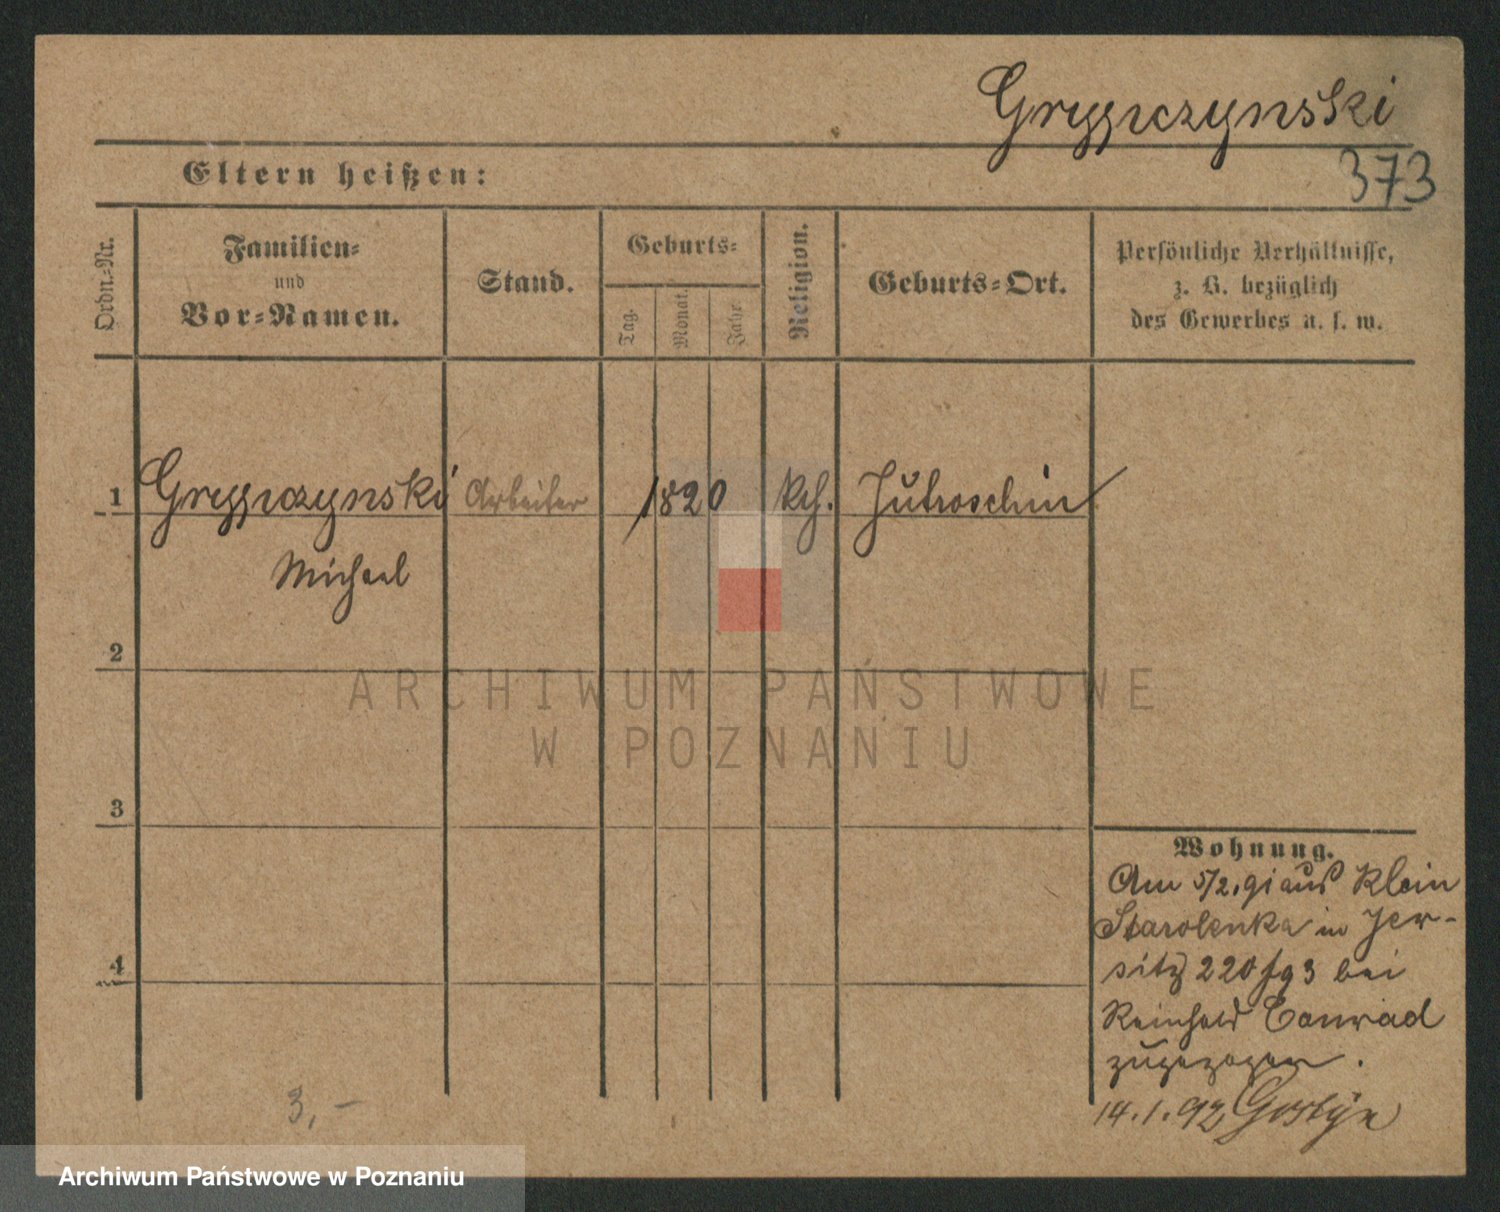 373
Eltern heißen:
Ordn.-Nr.
Familien-
und
Vor-Namen.
Stand.
Geburts-
Tag.
Monat.
Jahr.
Religion.
Geburts-Ort.
Persönliche Verhältnisse,
z. B. bezüglich
des Gewerbes u. s. w.
1 Arbeiter 1820 kth. Jutroschin
Michael
2
3
4
Wohnung.
Am 5/2. 91 aus Klein
Starolenka in Jer-
sitz 220 bei
Reinhold Conrad
zugezogen.
14.1.92 Gostyn
3,-
ARCHIWUM PAŃSTWOWE
W POZNANIU
Archiwum Państwowe w Poznaniu